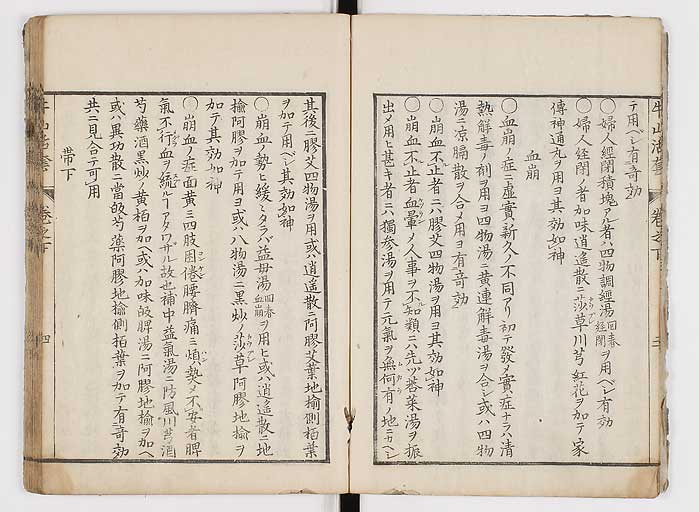 テ用ベシ有奇効
〇婦人經閉積塊アル者ハ四物調經湯回春經閉ヲ用ベシ有効
〇婦人經閉ノ者加味逍遙散ニ莎草川芎紅花ヲ加テ家
傳神通丸ヲ用ヨ其効如神
血崩
〇血崩ノ症ニ虚實新久ノ不同アリ初テ發メ實症ナラバ清
熱解毒ノ剤ヲ用ヨ四物湯ニ黄連解毒湯ヲ合シ或ハ四物
湯ニ凉膈散ヲ合メ用ヨ有奇効
〇崩血不止者ニハ膠艾四物湯ヲ用ヨ其効如神
〇崩血不止者血暈ノ人事ヲ不知類ニハ先ヅ蓉葉湯ヲ振
出メ用ヒ甚キ者ニハ獨参湯ヲ用テ元氣ヲ無何有ノ地ニカヘシ
其後ニ膠艾四物湯ヲ用或ハ逍遙散ニ阿膠艾葉地榆側栢葉
ヲ加テ用ベシ其効如神
〇崩血ノ勢ヒ緩ミタラバ益母湯回春血崩ヲ用ヒ或ハ逍遙散ニ地
榆阿膠ヲ加テ用ヨ或ハ八物湯ニ黒炒ノ莎草阿膠地榆ヲ
加テ其効如神
〇崩血ノ症面黄ニ四肢困倦腰臍痛ミ煩熱メ不安者脾
氣不行血ヲ統ルーアタワザル故也補中益氣湯ニ防風川芎酒
芍藥酒黒炒ノ黄栢ヲ加ヘ或ハ加味皈脾湯ニ阿膠地榆ヲ加ヘ
或ハ異功散ニ當皈芍藥阿膠地榆側栢葉ヲ加テ有奇効
共ニ見合テ可用
帶下
卷之下
四